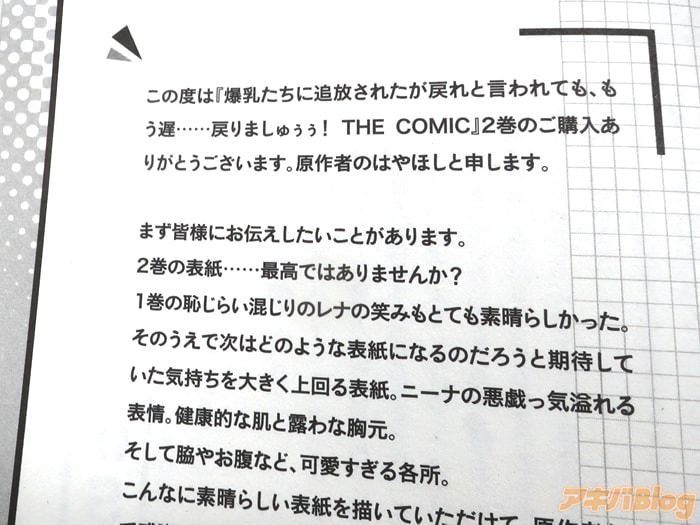 この度は『爆乳たちに追放されたが戻れと言われても、も
う遅……戻りましゅぅぅ! THE COMIC』2巻のご購入あ
りがとうございます。原作者のはやほしと申します。
まず皆様にお伝えしたいことがあります。
2巻の表紙……最高ではありませんか?
1巻の恥じらい混じりのレナの笑みもとても素晴らしかった。
そのうえで次はどのような表紙になるのだろうと期待して
いた気持ちを大きく上回る表紙。ニーナの悪戯っ気溢れる
表情。健康的な肌と露わな胸元。
そして脇やお腹など、可愛すぎる各所。
こんなに素晴らしい表紙を描いていただけて、原作
アキバBlog